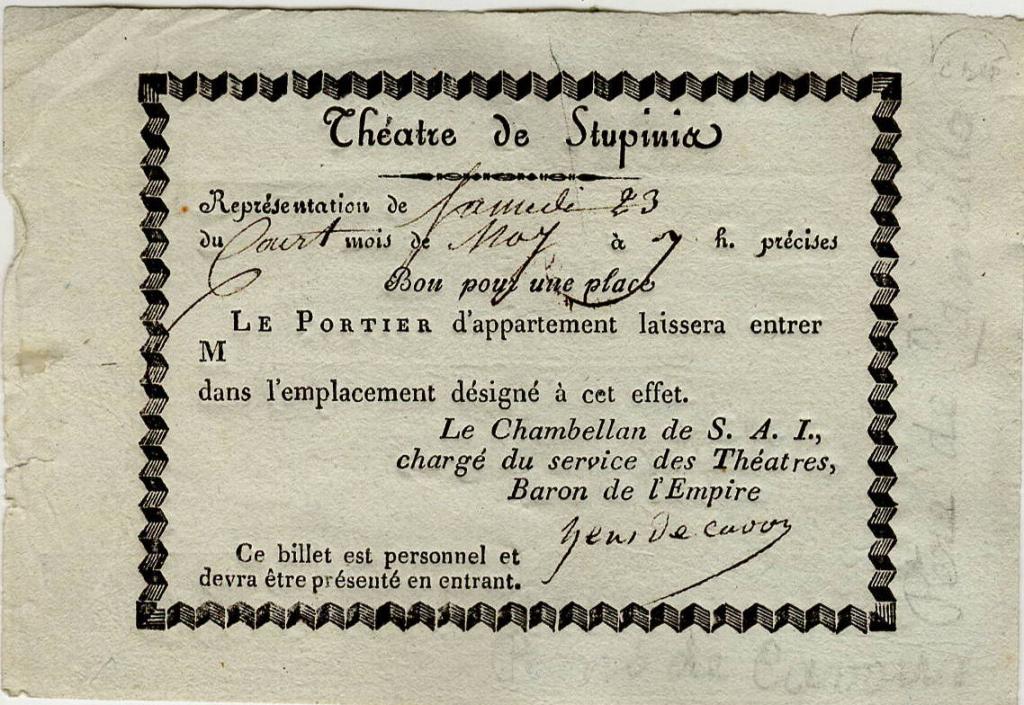 Théatre de Stupinis
Représentation de Samedi 23
du Court mois de May à 7 h. précises
Bon pour une place
LE PORTIER d'appartement laissera entrer
M
dans l'emplacement désigné à cet effet.
Le Chambellan de S. A. I.,
chargé du service des Théatres,
Baron de l'Empire
Ce billet est personnel et
devra être présenté en entrant.